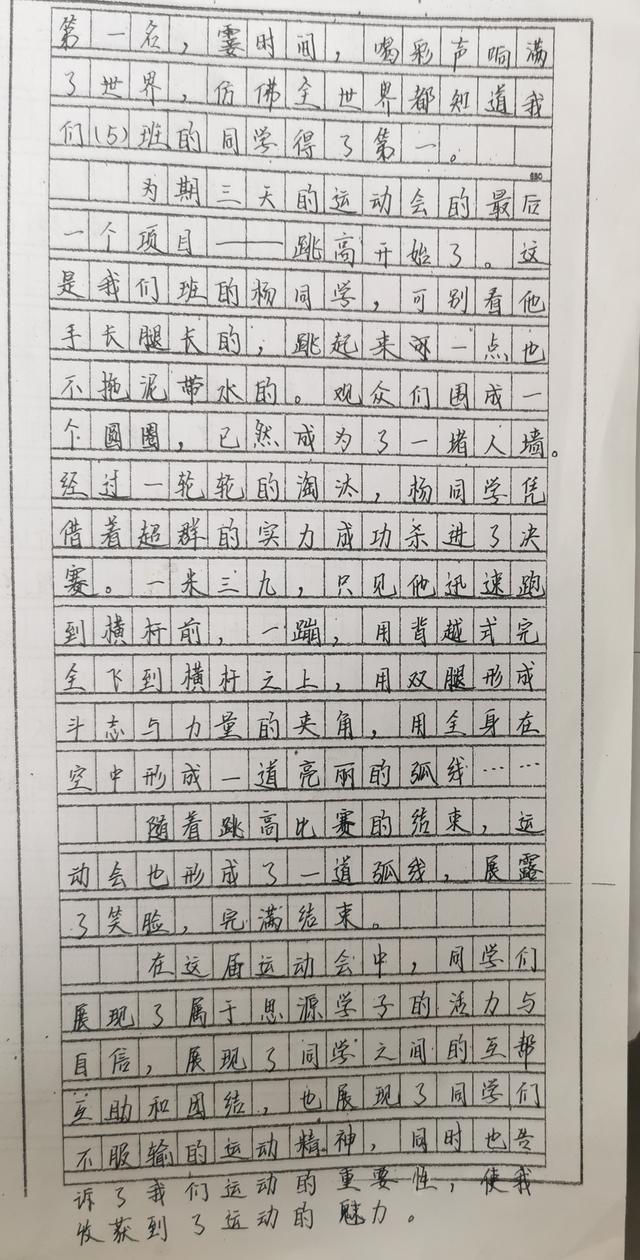 第一名，霎时间，喝彩声响满
了世界，仿佛全世界都知道我
们(5)班的同学得了第一。
为期三天的运动会的最后
一个项目——跳高开始了。这
是我们班的杨同学，可别看他
手长腿长的，跳起来可一点也
不拖泥带水的。观众们围成一
个圆圈，已然成为了一堵人墙。
经过一轮轮的淘汰，杨同学凭
借着超群的实力成功杀进了决
赛。一米三九，只见他迅速跑
到横杆前，一蹦，用背越式完
全飞到横杆之上，用双腿形成
斗志与力量的夹角，用全身在
空中形成一道亮丽的弧线……
随着跳高比赛的结束，运
动会也形成了一道弧线，展露
了笑脸，完满结束。
在这届运动会中，同学们
展现了属于思源学子的活力与
自信，展现了同学之间的互帮
互助和团结，也展现了同学们
不服输的运动精神，同时也告
诉了我们运动的重要性，使我
收获到了运动的魅力。